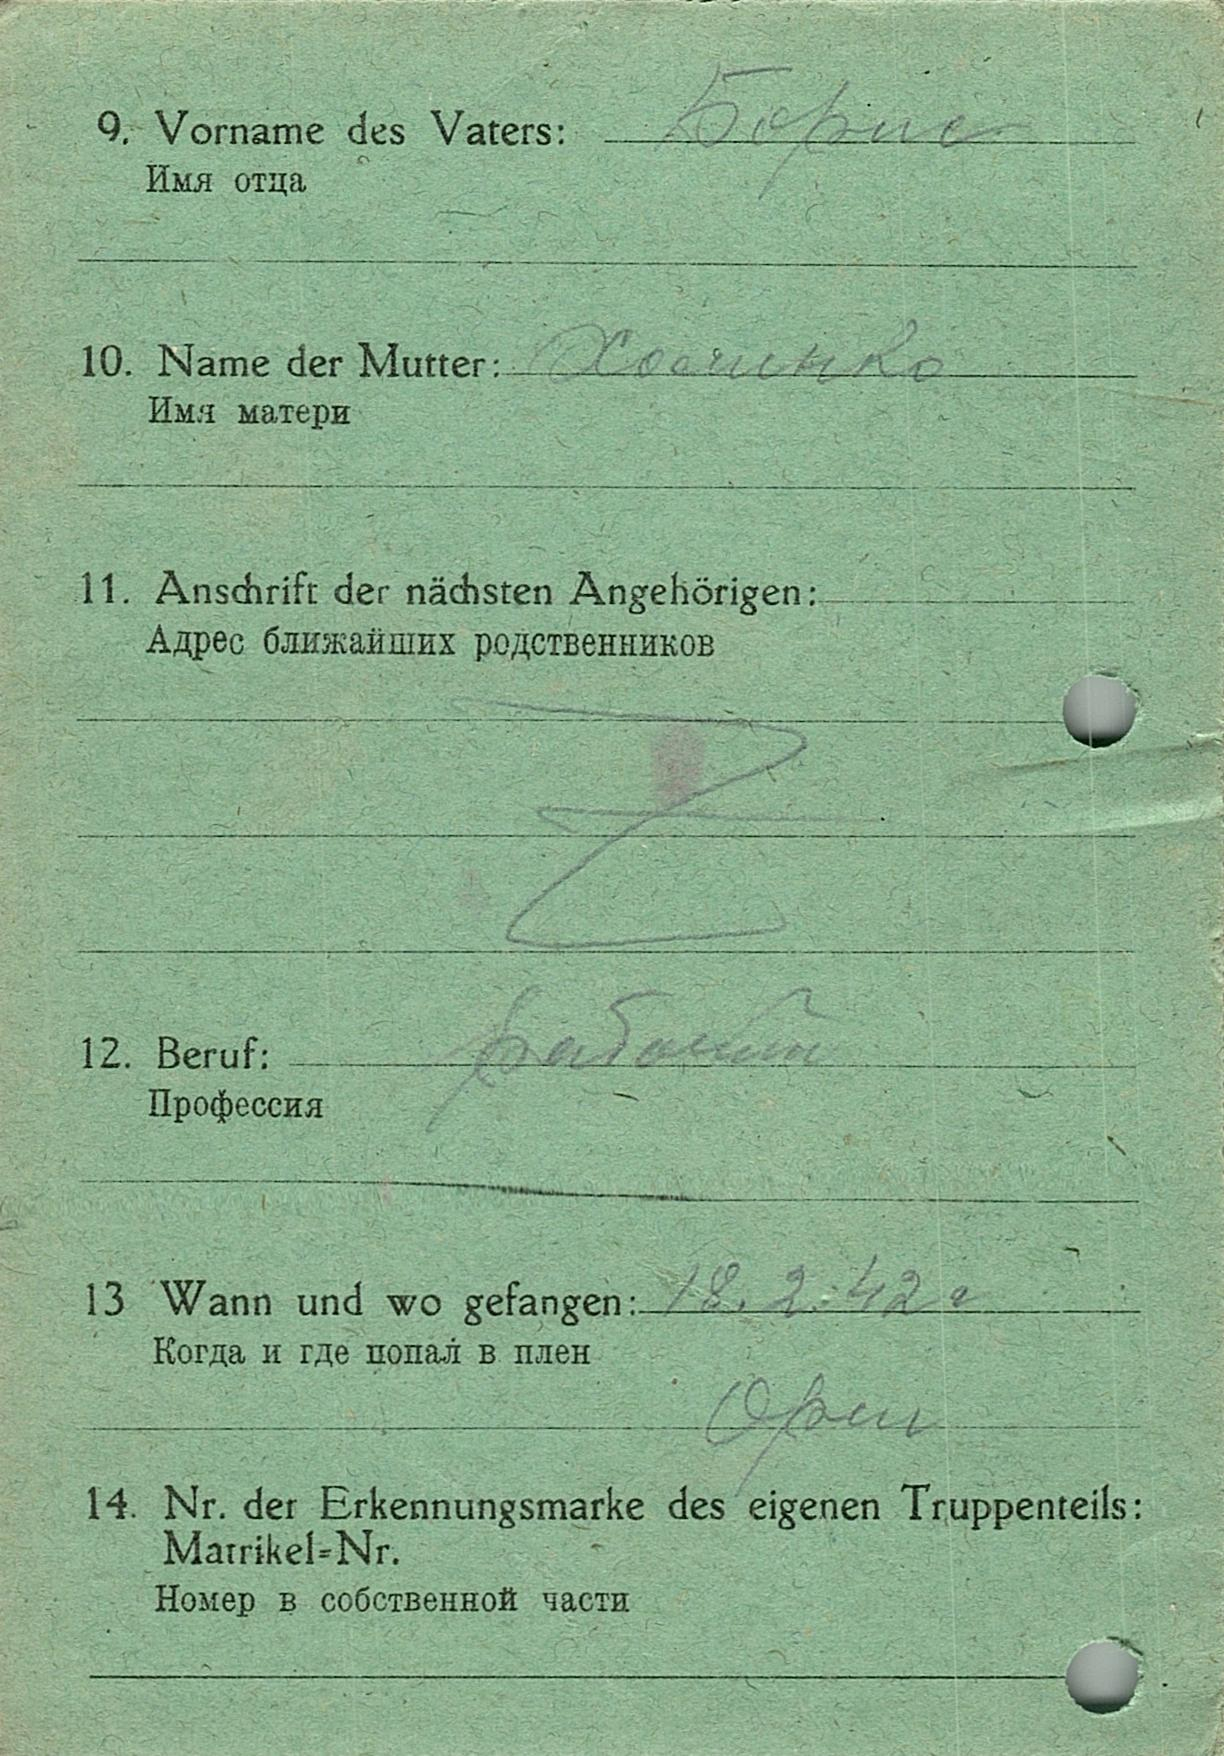 9. Vorname des Vaters: Борис
Имя отца
10. Name der Mutter:
Имя матери
11. Anschrift der nächsten Angehörigen:
Адрес ближайших родственников
12. Beruf: рабочий
Профессия
13 Wann und wo gefangen: 18.2.42г
Когда и где попал в плен
14. Nr. der Erkennungsmarke des eigenen Truppenteils:
Matrikel=Nr.
Номер в собственной части